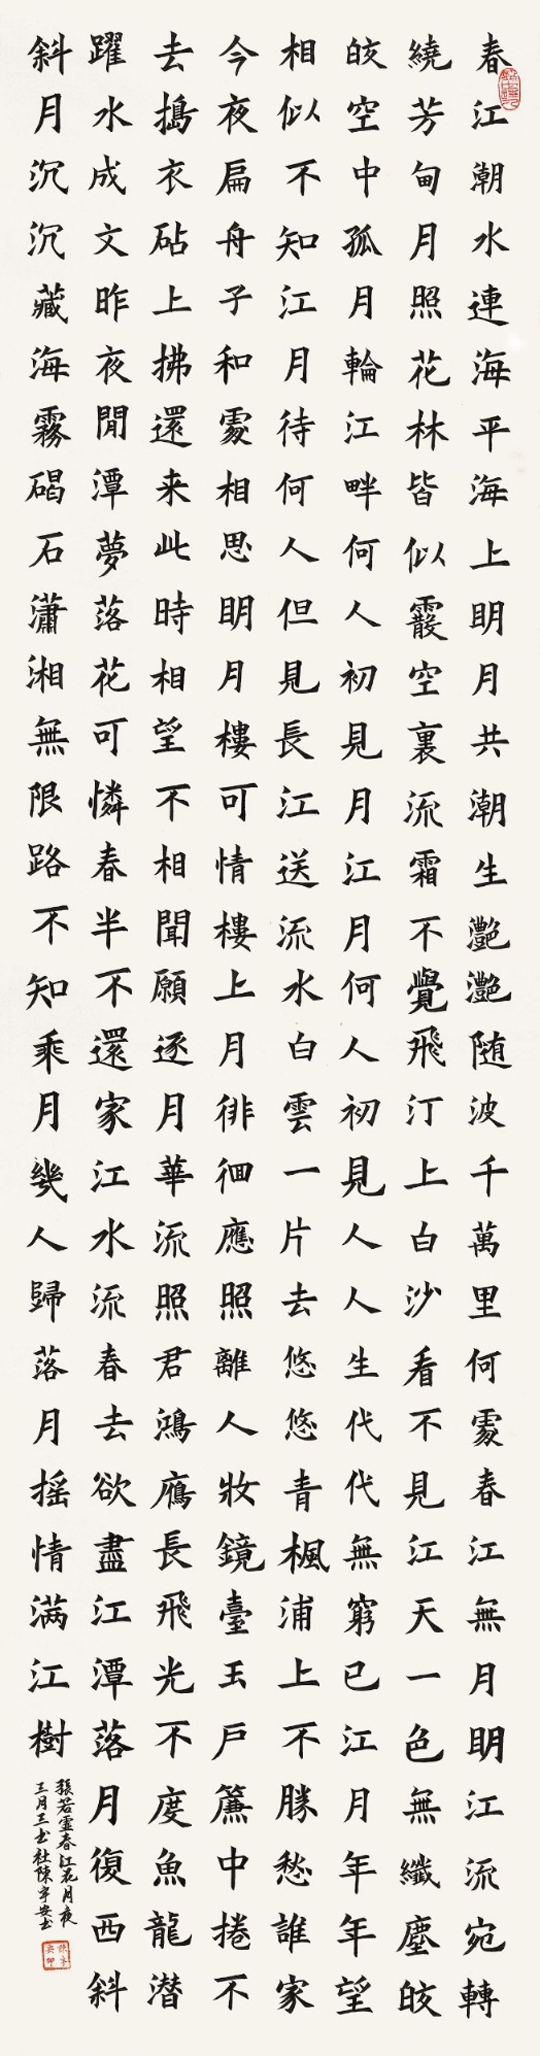 春江潮水連海平海上明月共潮生灎灎随波千萬里何處春江無月明江流宛轉
繞芳甸月照花林皆似霰空裏流霜不覺飛汀上白沙看不見江天一色無纖塵皎
皎空中孤月輪江畔何人初見月江月何人初見人人生代代無窮已江月年年望
相似不知江月待何人但見長江送流水白雲一片去悠悠青楓浦上不勝愁誰家
今夜扁舟子和處相思明月樓可情樓上月徘徊應照離人妝鏡臺玉戶簾中捲不
去搗衣砧上拂還来此時相望不相聞願逐月華流照君鴻鴈長飛光不度魚龍潜
躍水成文昨夜閒潭夢落花可憐春半不還家江水流春去欲盡江潭落月復西斜
斜月沉沉藏海霧碣石瀟湘無限路不知乘月幾人歸落月摇情满江樹
張若虛春江花月夜
三月三書社陳宇安書